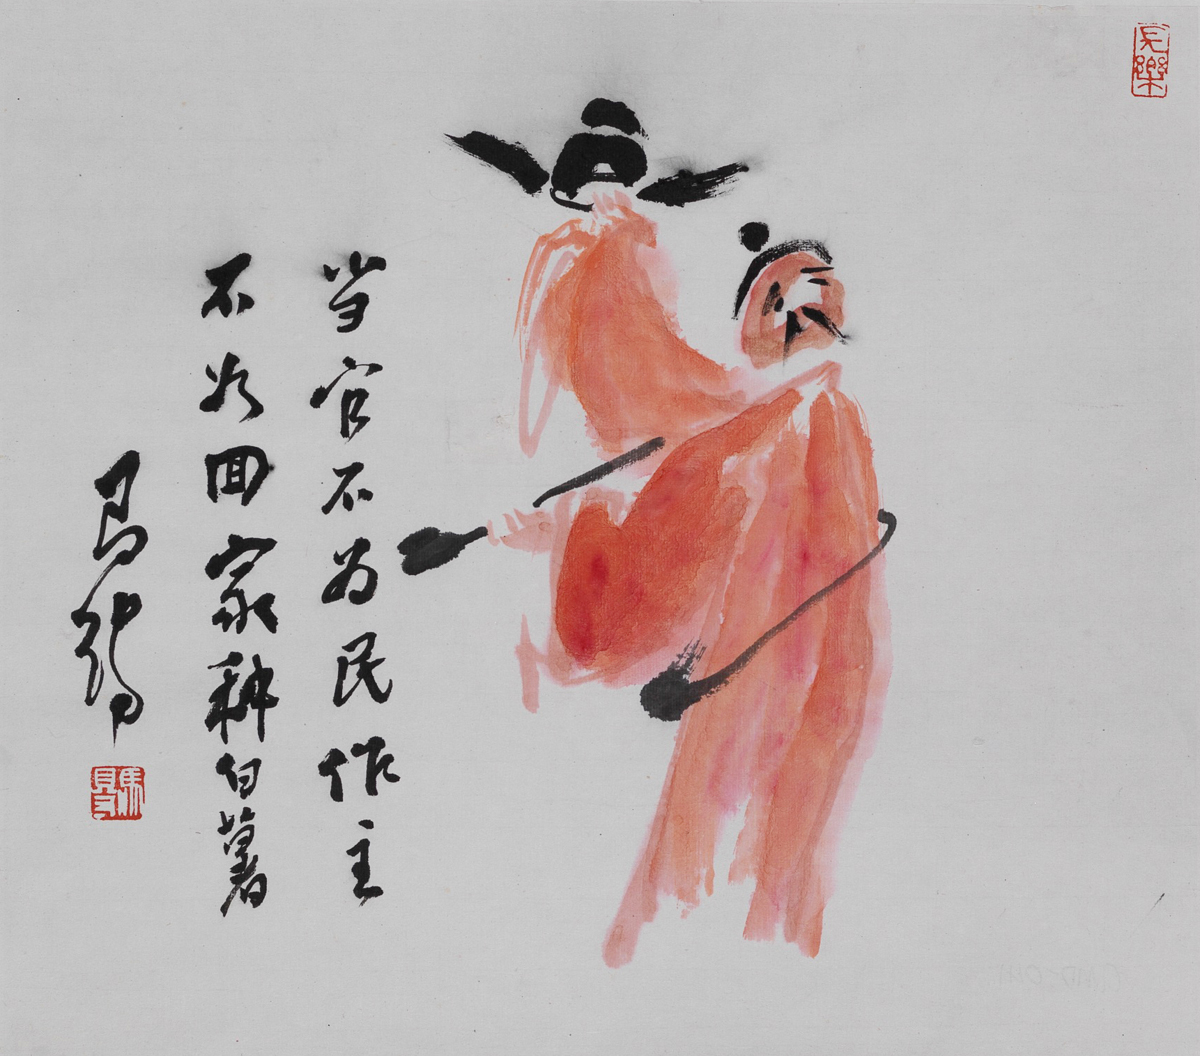 当官不为民作主
不如囬家种白薯
马得
馬得